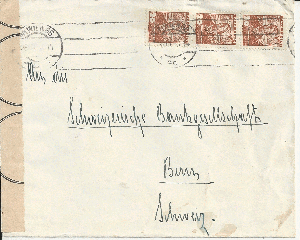 An die
Schweizerische Bankgesellschaft
Bern
Schweiz.